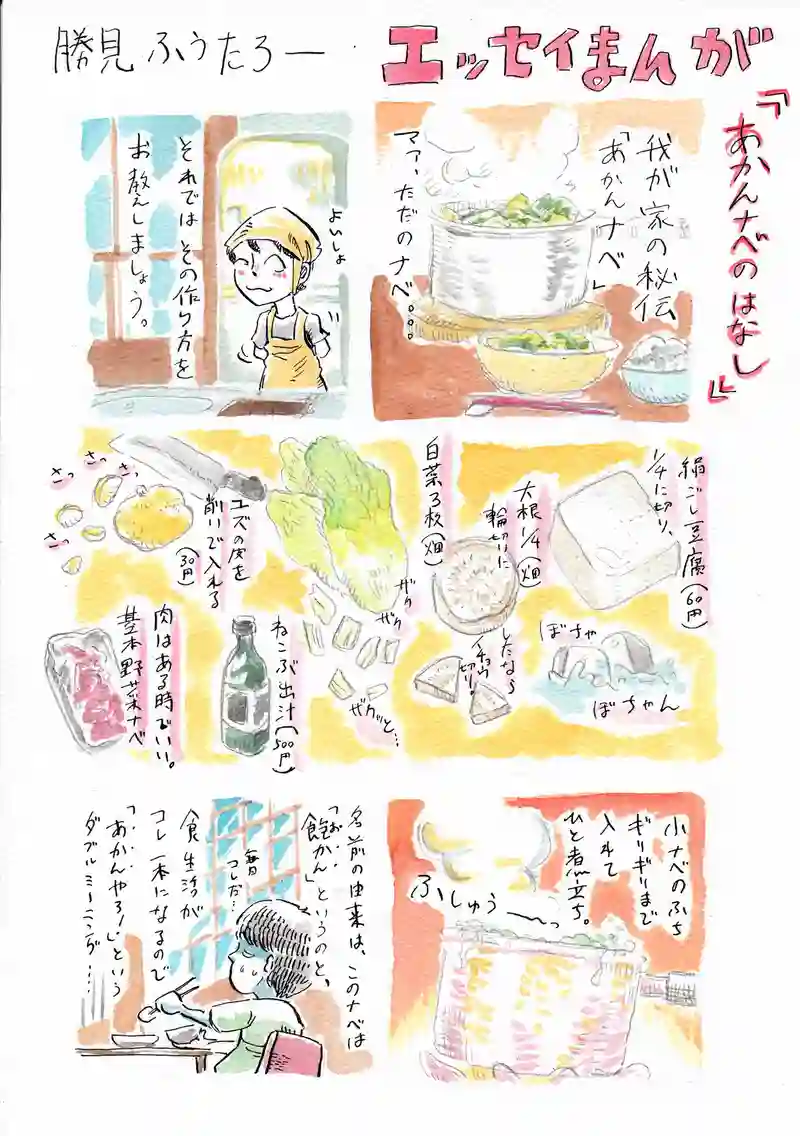 勝見ふうたろー
エッセイまんが
『あかんナベのはなし』
我が家の秘伝
「あかんナベ」
マァ、ただのナベ。。。
よいしょ
それでは その作り方を
お教えしましょう。
絹ごし豆腐(60円)
1/4に切り、
ぼちゃ
ぼちゃん
大根1/4(畑)
輪切りに
したなら
イチョウ
切り。
白菜3枚(畑)
ザク
ザク
ザクッと…
ユズの皮を
削いで入れる
(30円)
さっ
さっ
さっ
さっ
ねこぶ出汁(500円)
肉はある時でいい。
基本野菜ナベ
小ナベのふち
ギリギリまで
入れて
ひと煮立ち。
ふしゅう〜っ
名前の由来は、このナベは
「飽かん」というのと、
毎日
コレだ…
食生活が
コレ一本になるので
「あかんやろ!」という
ダブルミーニング……